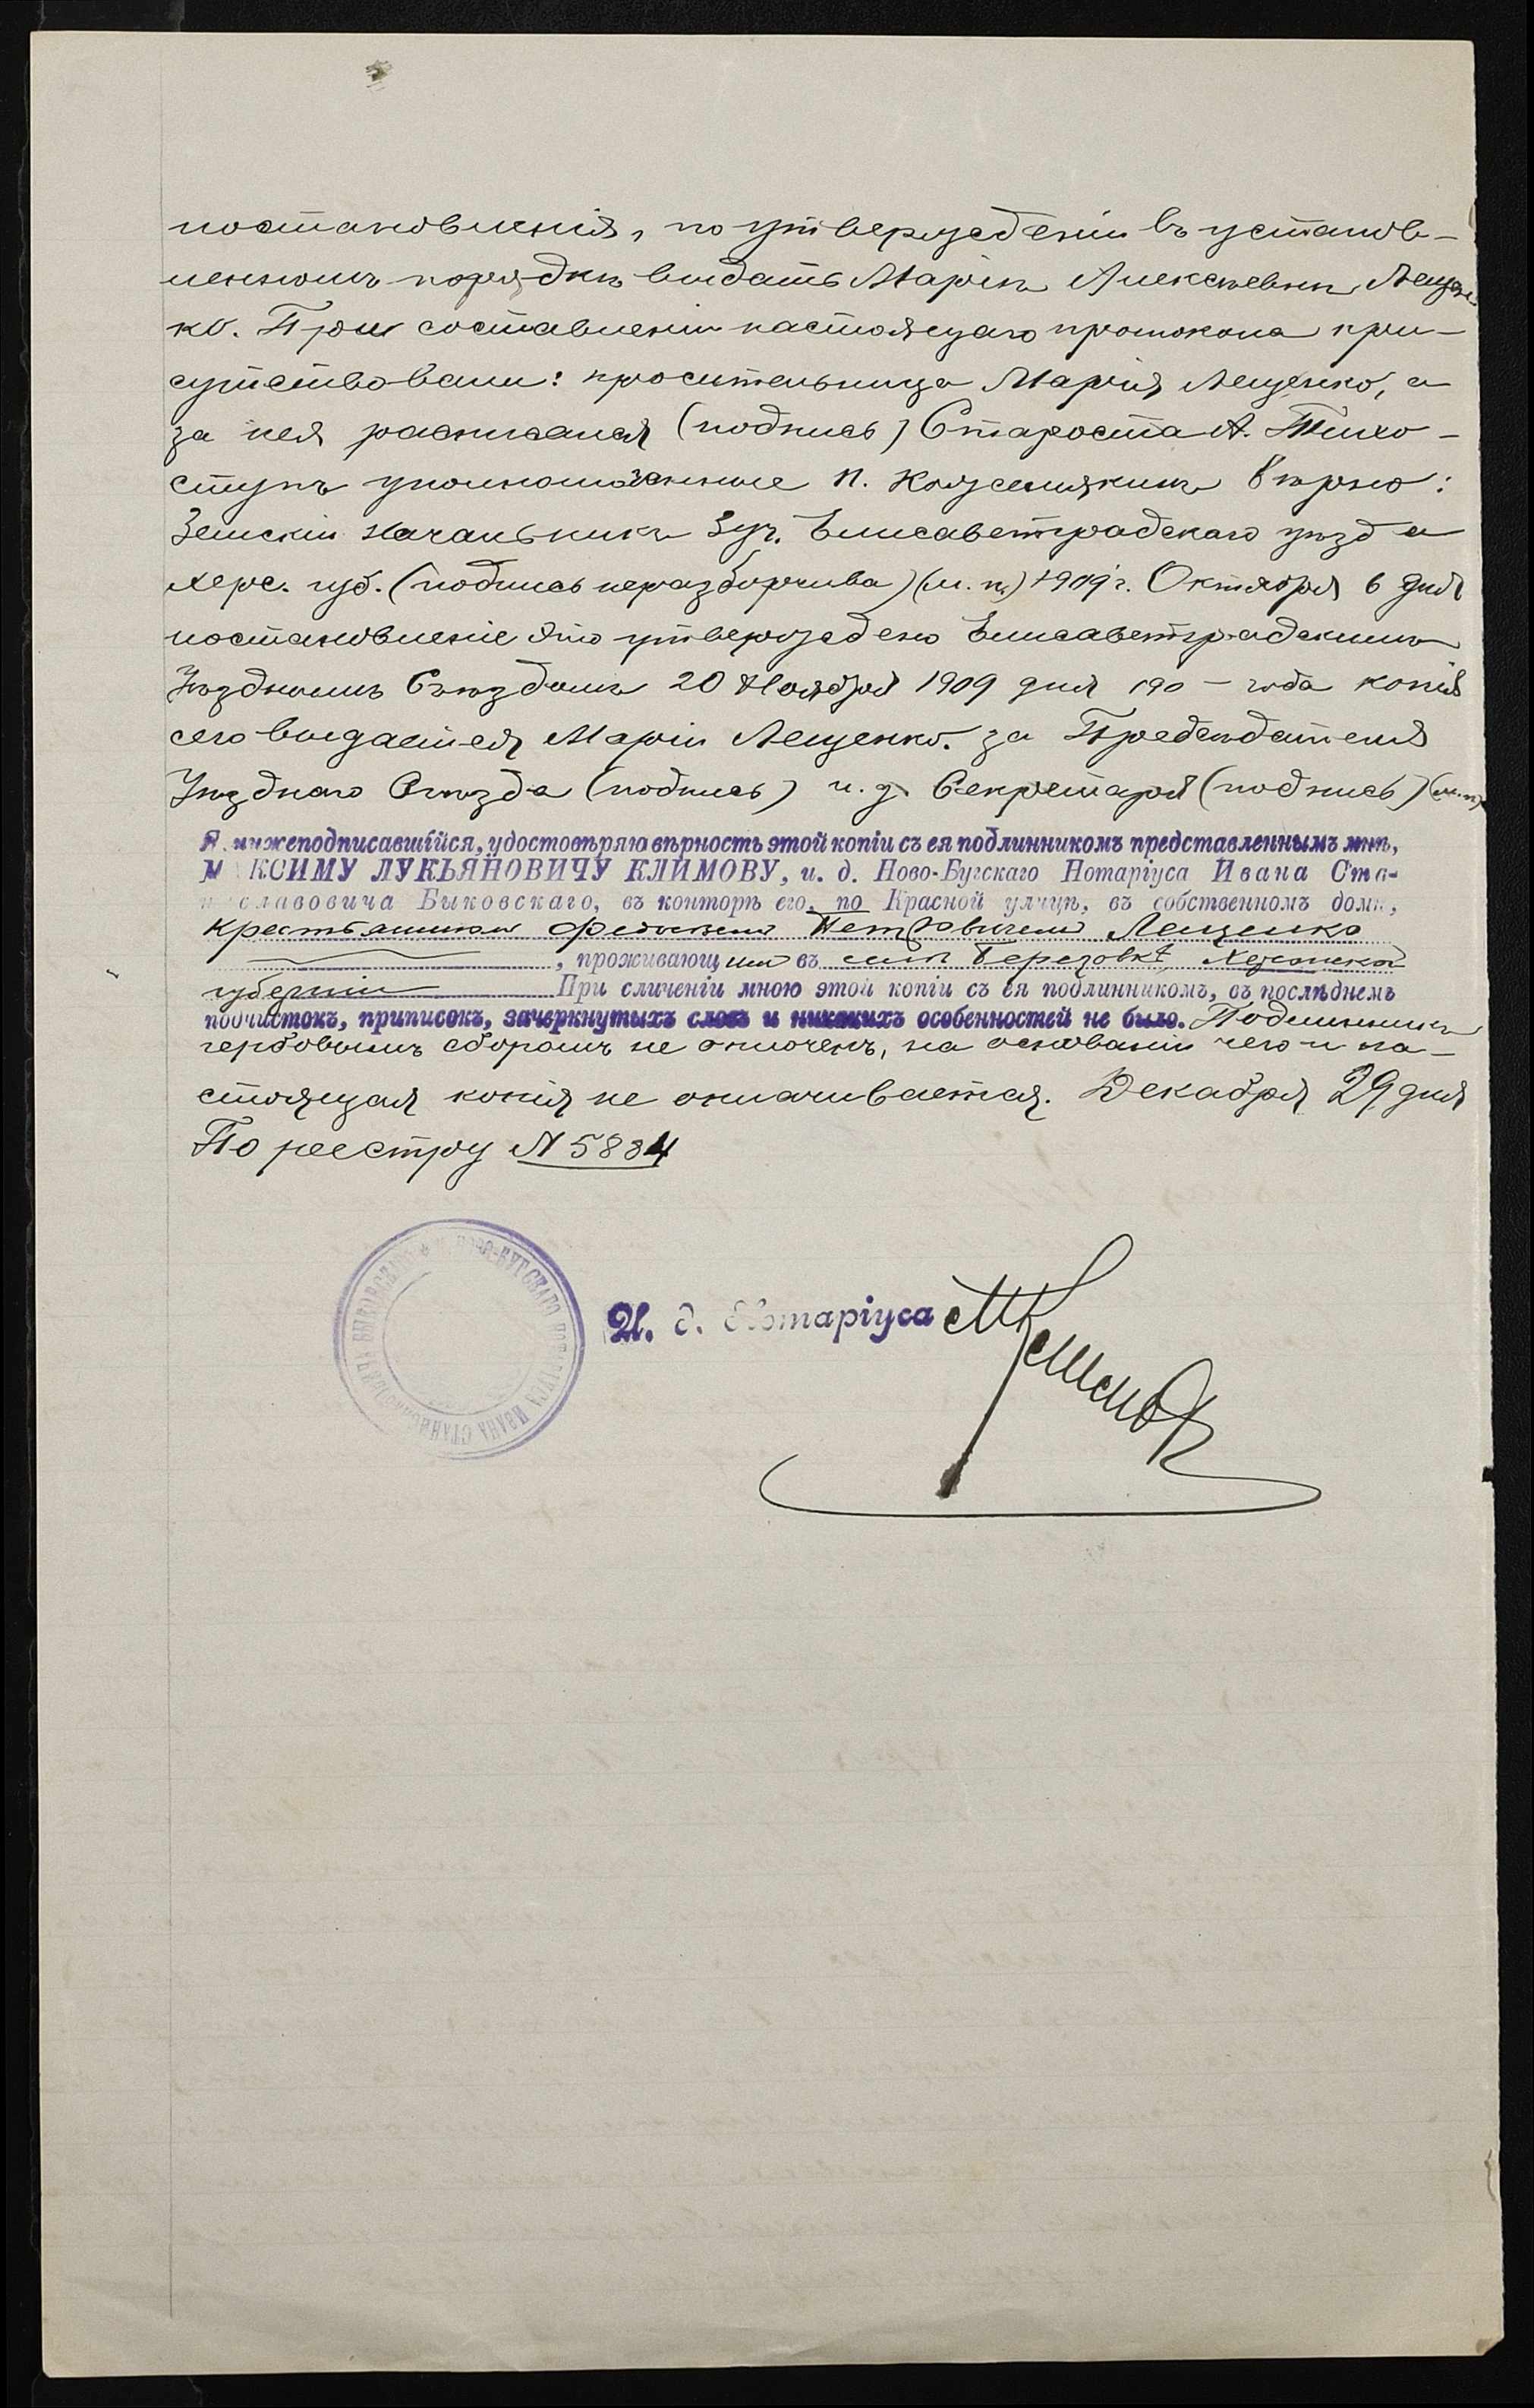 постановленія, по утвержденіи въ установ-
ленномъ порядкѣ выдать Маріи Алексѣевнѣ Лещен-
ко. При составленіи настоящаго протокола при-
сутствовали: просительница Марія Лещенко, а
за нея расписался (подпись) Староста А. Тихо-
ступъ уполномоченные П. Кожемякинъ Вѣрно:
Земскій Начальникъ 3 уч. Елисаветградскаго уѣзда
Херс. губ. (подпись неразборчива) (м. п.) 1909 г. Октября 6 дня
постановленіе это утверждено Елисаветградскимъ
Уѣзднымъ Съѣздомъ 20 Ноября 1909 дня 190 – года копія
сего выдается Маріи Лещенко. за Предсѣдателя
Уѣзднаго Съѣзда (подпись) и. д. Секретаря (подпись) (м. п.)
Я, нижеподписавшійся, удостовѣряю вѣрность этой копіи съ ея подлинникомъ представленнымъ мнѣ,
МАКСИМУ ЛУКЬЯНОВИЧУ КЛИМОВУ, и. д. Ново-Бугскаго Нотаріуса Ивана Ста-
ниславовича Быковскаго, въ конторѣ его, по Красной улицѣ, въ собственномъ домѣ,
крестьяниномъ Петровичемъ Лещенко
, проживающимъ въ селѣ Березовкѣ, Херсонской
губерніи При сличеніи мною этой копіи съ ея подлинникомъ, въ послѣднемъ
подчистокъ, приписокъ, зачеркнутыхъ словъ и никакихъ особенностей не было. Подлинникъ
гербовымъ сборомъ не оплоченъ, на основаніи чего и на-
стоящая копія не оплачивается. Декабря 29 дня
По реестру N 5884
НОВО-БУГСКАГО НОТАРІУСА ИВАНА СТАНИСЛАВОВИЧА БЫКОВСКАГО
И. д. Нотаріуса МКлимовъ